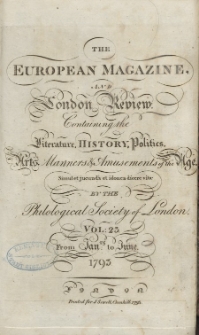 THE
EUROPEAN MAGAZINE,
AND
London Review
Containing the
Literature, HISTORY, Politics,
Arts, Manners & Amusements of the Age.
Simul et jucunda et idonea dicere vitæ
BY THE
Philological Society of London
VOL. 23
From Jan.y to June,
1793
LONDON
Printed for J. Sewell, Cornhill 1793.